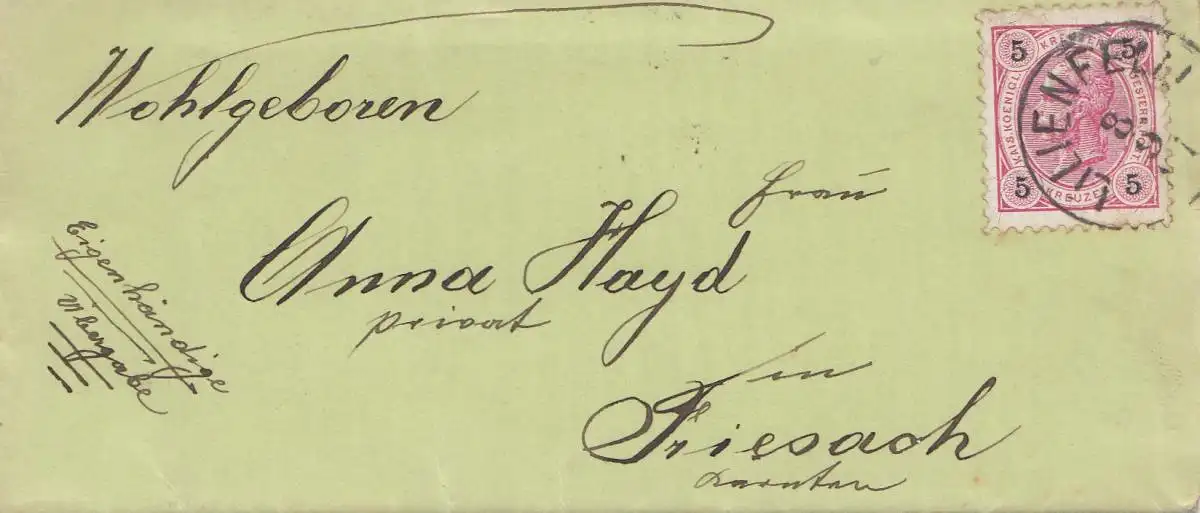 Wohlgeboren
Frau
Anna Hayd
privat
in
Friesach
Kärnten
Eigenhändige
Übergabe
5 KREUZER 5
KAIS. KOENIGL. OESTERR. POST.
5 KREUZER 5
LILIENFELD
8 9